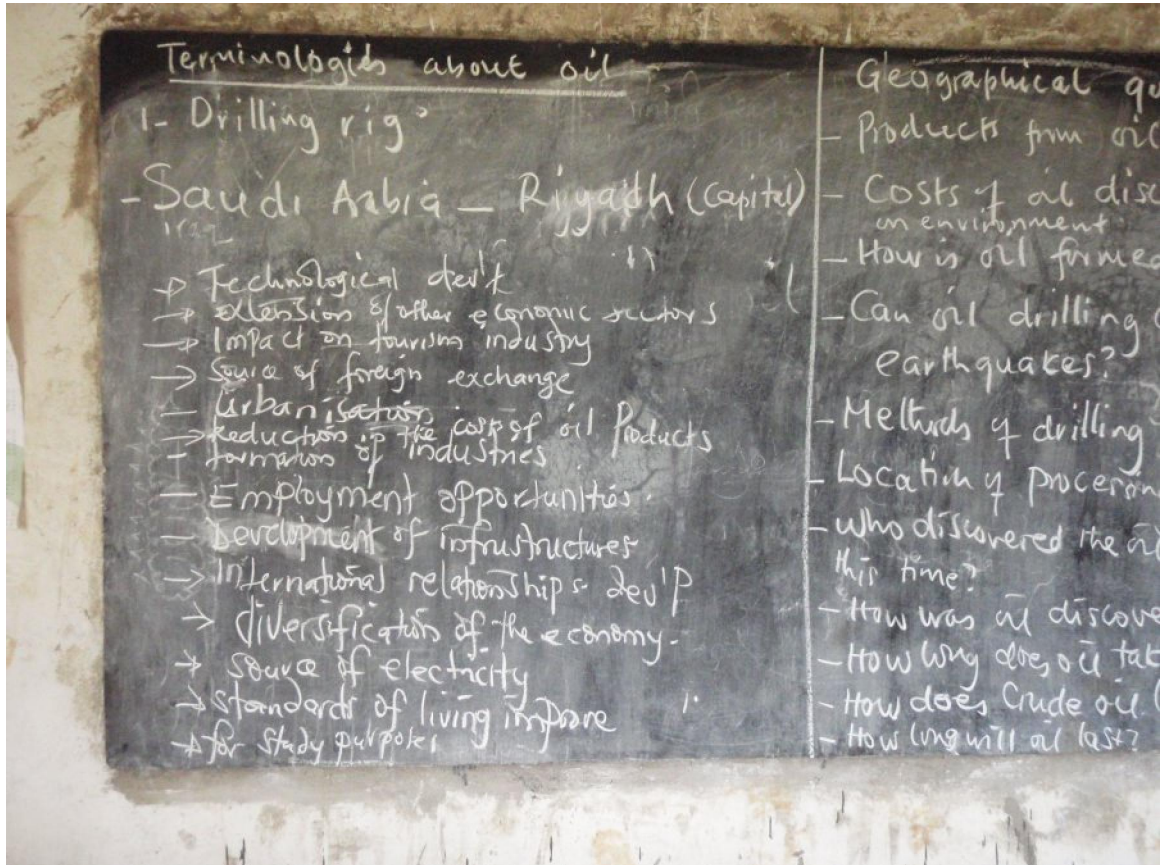 Terminologies about oil
1- Drilling rig
- Saudi Arabia - Riyadh (Capital)
iraq
→ Technological dev't
→ extension of other economic sectors
→ Impact on tourism industry
→ Source of foreign exchange
- Urbanisation
→ Reduction in the cost of oil Products
- formation of industries
- Employment opportunities.
- Development of infrustructures
→ International relationships dev'p
→ diversification of the economy.
→ source of electricity
→ standards of living improve
→ for study purposes
Geographical qu
- Products from oil
- Costs of oil disc
on environment
- How is oil formed
- Can oil drilling
earthquakes?
- Methods of drilling
- Location of processin
- who discovered the oil
this time?
- How was oil discove
- How long does oil tak
- How does Crude oil
- How long will oil last?